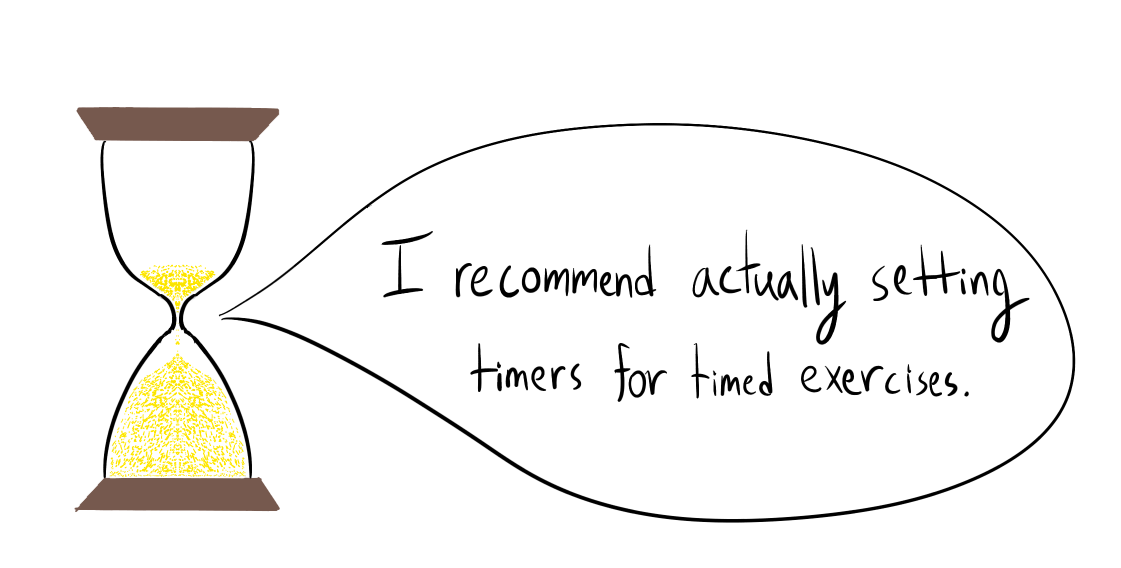 I recommend actually setting
timers for timed exercises.